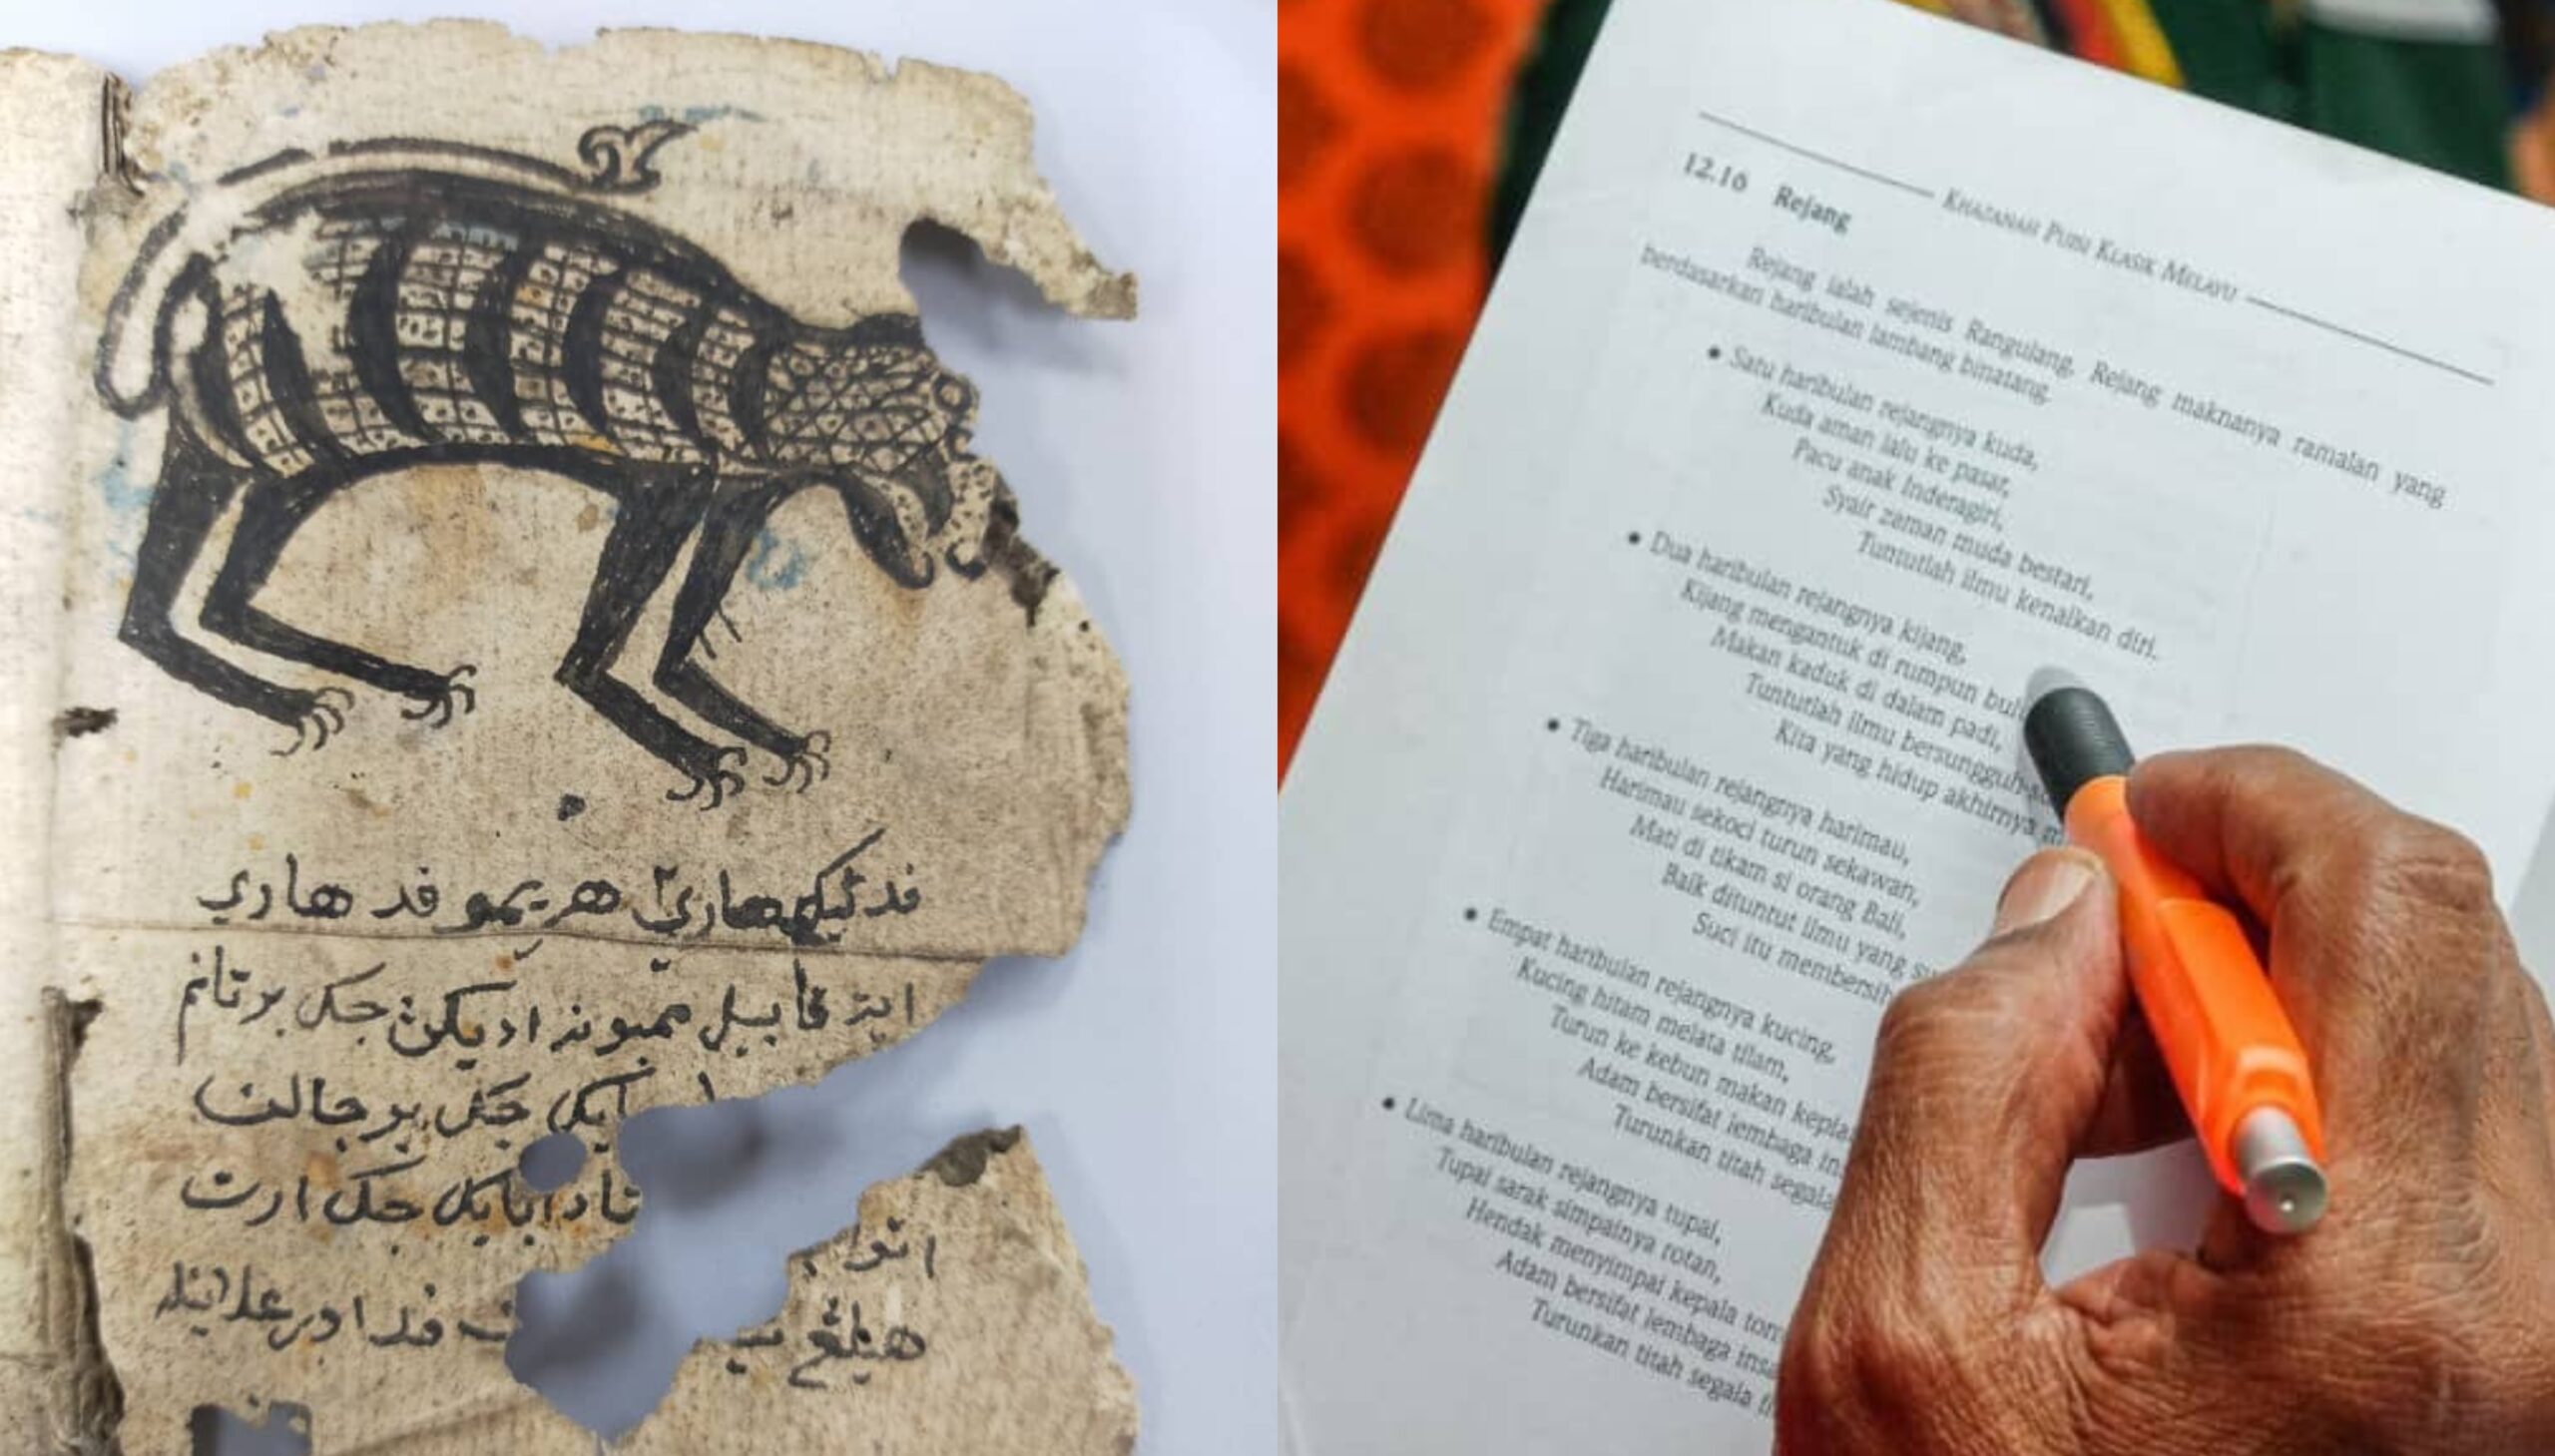 فد تيک هاري٢ هريمو فد هاري
ايت قابيل ممبونه اديکڽ جک برتانم
ايک جک برجالن
تادا بايک جک ارت
هيلڠ
فد
KHAZANAH PUISI KLASIK MELAYU
12.16 Rejang
Rejang ialah sejenis Rangulang, Rejang maknanya ramalan yang
berdasarkan haribulan lambang binatang.
• Satu haribulan rejangnya kuda,
Kuda aman lalu ke pasar,
Pacu anak Inderagiri,
Syair zaman muda bestari,
Tuntutlah ilmu kenalkan diri.
• Dua haribulan rejangnya kijang,
Kijang mengantuk di rumpun bul
Makan kaduk di dalam padi,
Tuntutlah ilmu bersungguh-
Kita yang hidup akhirnya m
• Tiga haribulan rejangnya harimau,
Harimau sekoci turun sekawan,
Mati di tikam si orang Bali,
Baik dituntut ilmu yang su
Suci itu membersih
• Empat haribulan rejangnya kucing,
Kucing hitam melata tilam,
Turun ke kebun makan kepia
Adam bersifat lembaga in
Turunkan titah segala
• Lima haribulan rejangnya tupai,
Tupai sarak simpainya rotan,
Hendak menyimpai kepala ton
Adam bersifat lembaga insa
Turunkan titah segala